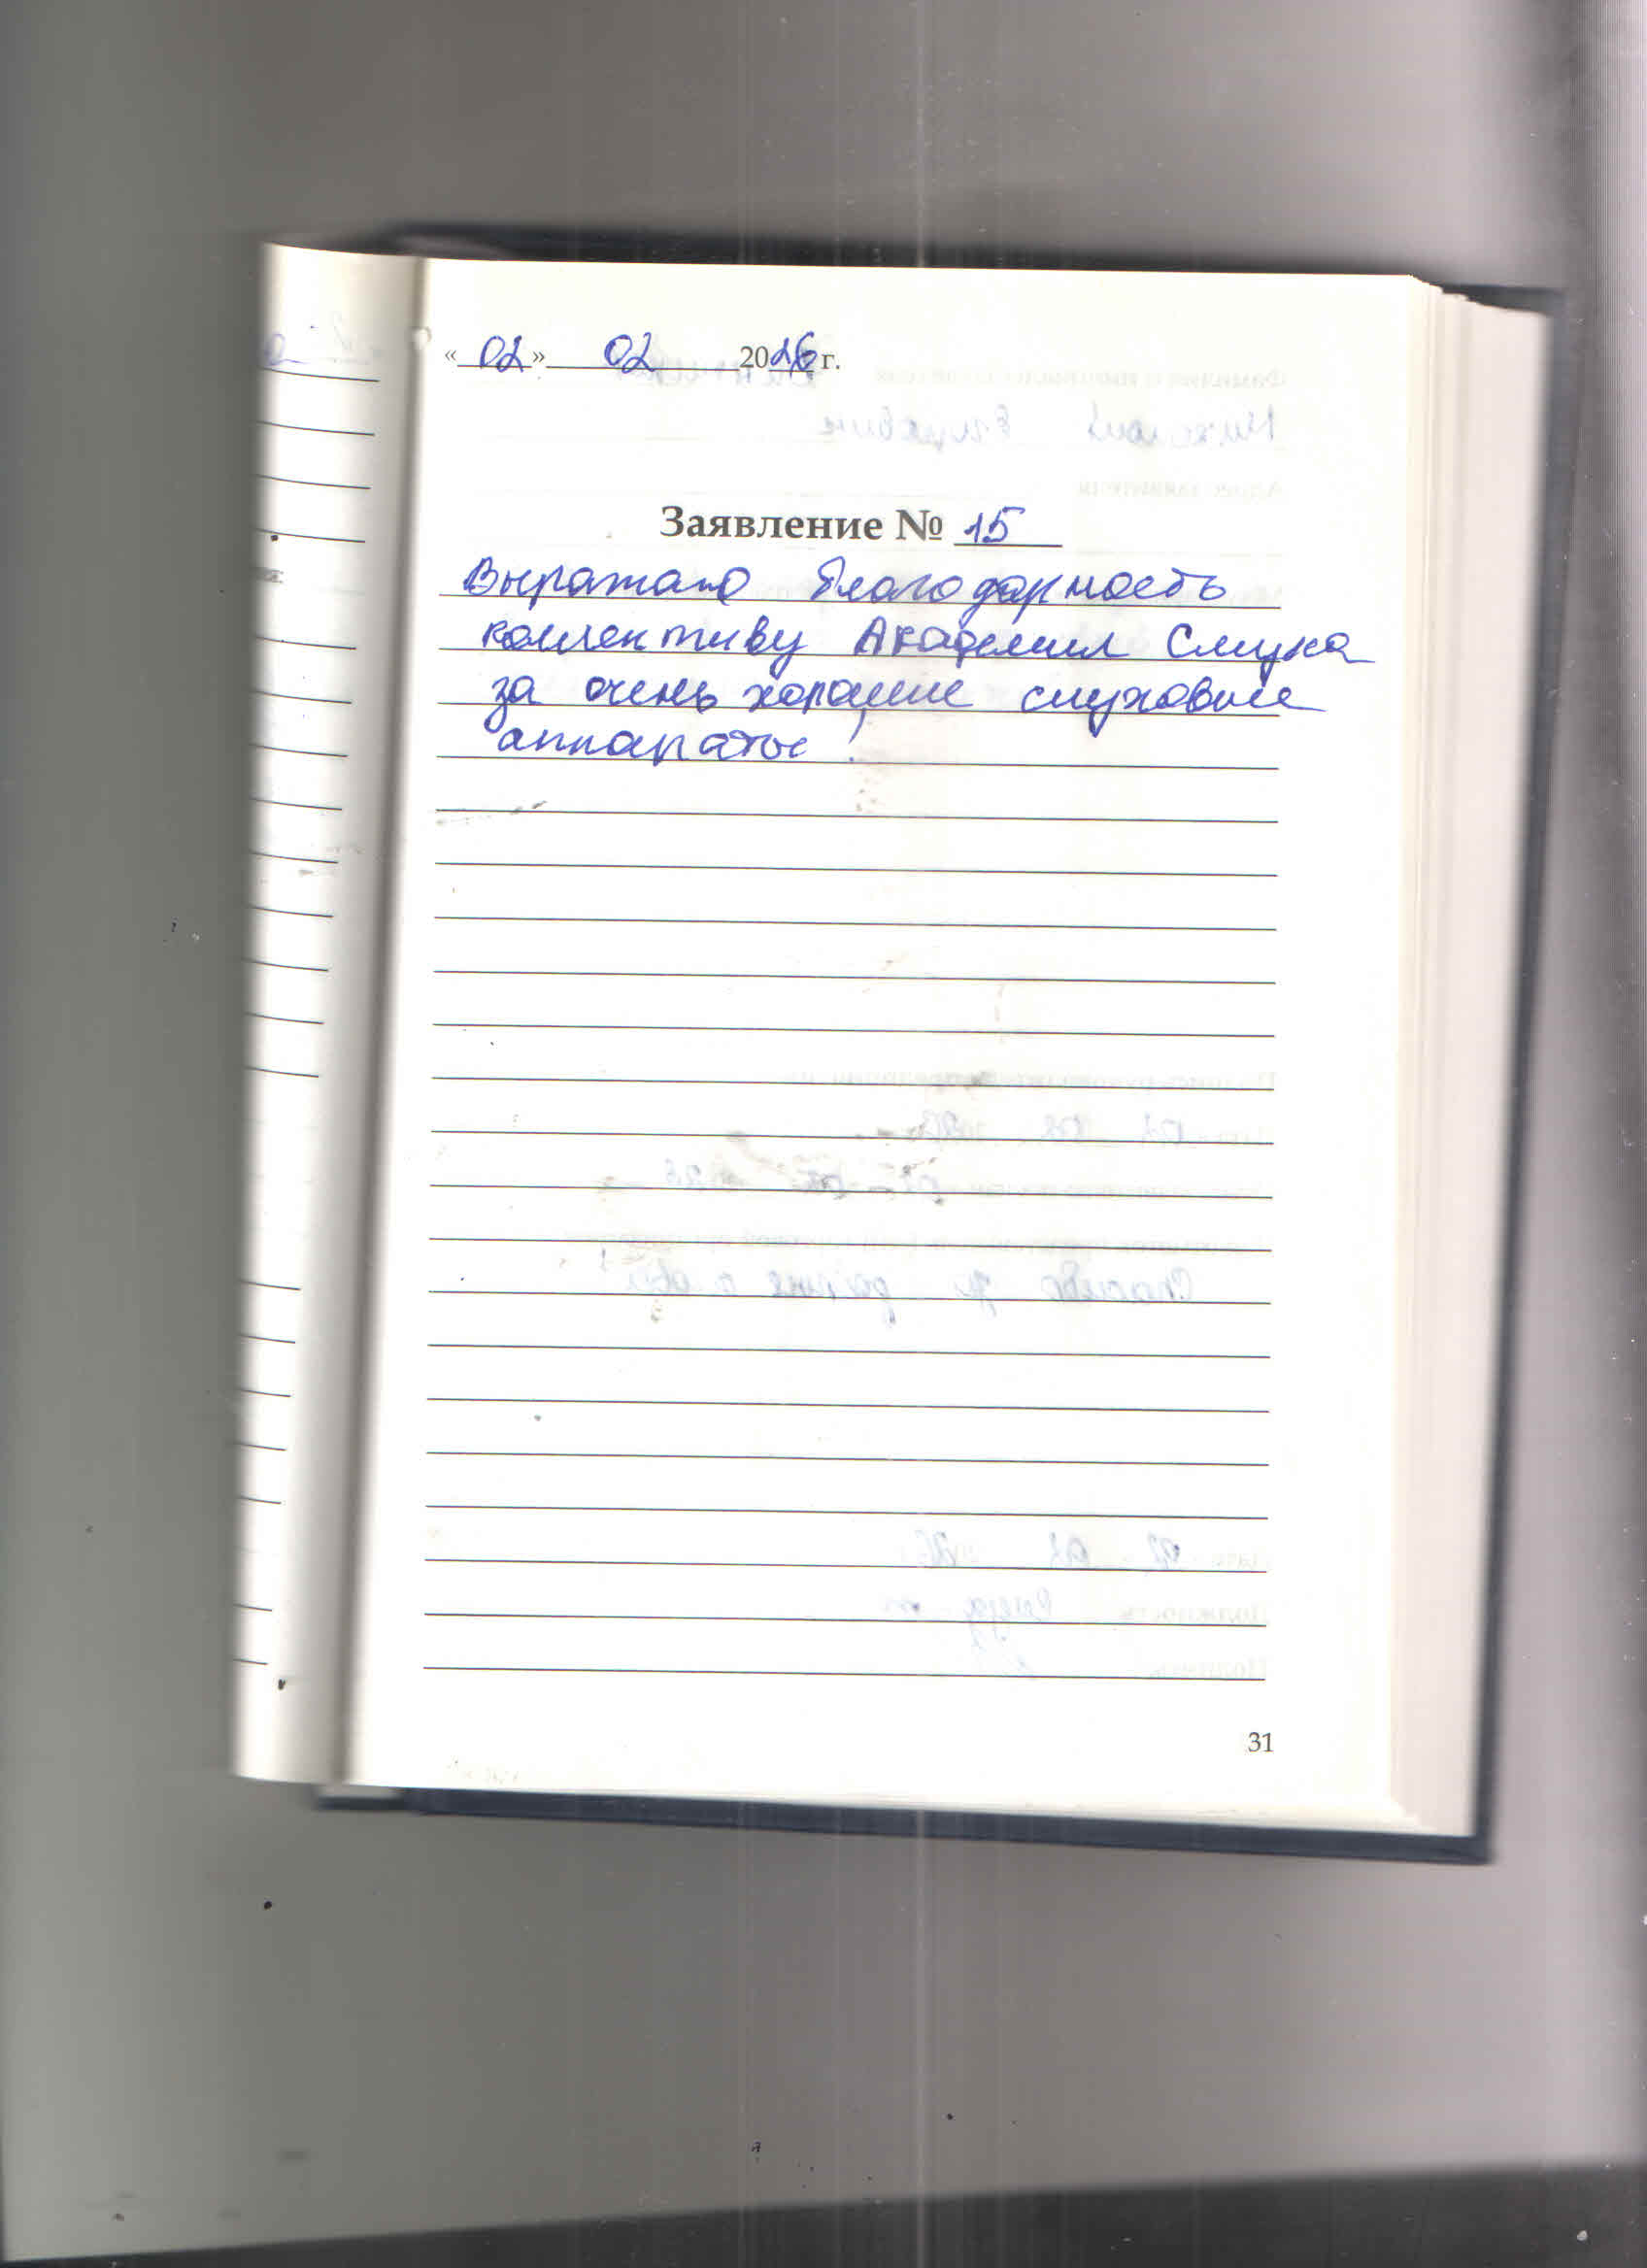 « 02 » 02 2026 г.
Заявление № 15
Выражаю благодарность
коллективу Академии Слуха
за очень хорошие слуховые
аппараты!
31